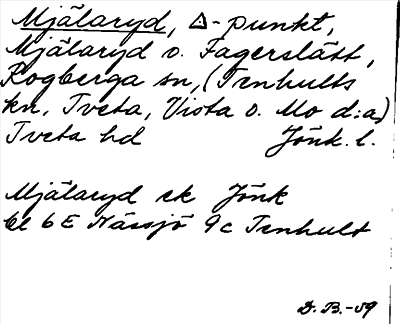 Mjälaryd, △-punkt,
Mjälaryd o. Fagerslätt,
Rogberga sn, (Tenhults
kn, Tveta, Vista o. Mo d:a)
Tveta hd Jönk. l.
Mjälaryd ek Jönk
bl 6E Nässjö 9c Tenhult
D. B. -59